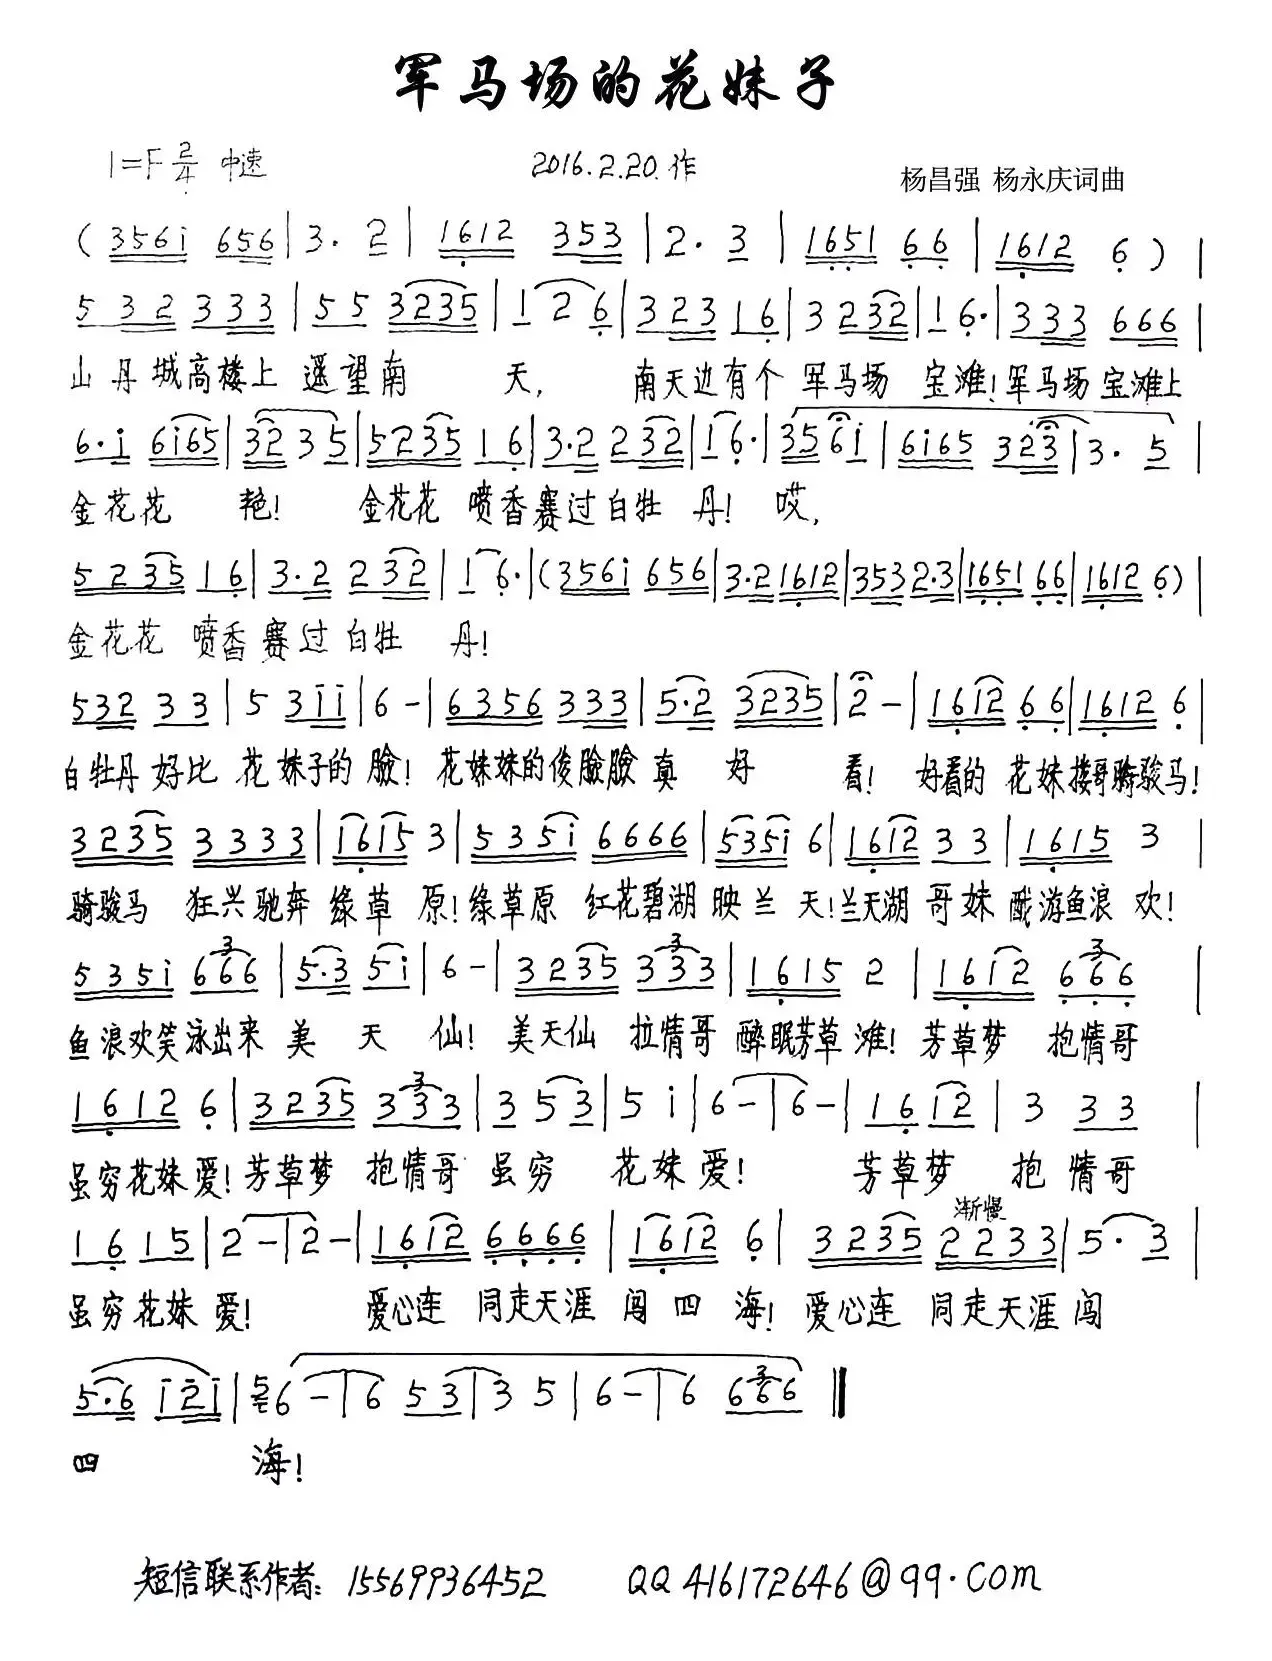 军马场的花妹子
1=F 2/4 中速 2016.2.20.作 杨昌强 杨永庆词曲
(3561 656|3. 2|1612 353|2. 3|1651 66|1612 6)|
5 32 333|55 3235|1 2 6|323 16|3 232|1 6.|333 666|
山丹城高楼上遥望南 天, 南天边有个军马场 宝滩!军马场宝滩上
6.i 6i65|32 35|5235 16|3.2 232|1 6.|35 6i|6i65 323|3. 5|
金花花 艳! 金花花 喷香赛过白牡 丹! 哎,
5235 16|3.2 232|1 6.|(356i 656|3.2 1612|353 2.3|1651 66|1612 6)|
金花花 喷香赛过白牡 丹!
532 33|5 3ii|6 -|6356 333|5.2 3235|2 -|1612 66|1612 6|
白牡丹好比 花妹子的脸! 花妹妹的俊脸脸真 好 看! 好看的 花妹搂哥骑骏马!
3235 3333|1615 3|535i 6666|535i 6|1612 33|1615 3|
骑骏马 狂兴驰奔 绿草 原!绿草原 红花碧湖映兰天!兰天湖 哥妹 戲游鱼浪 欢!
535i 666|5.3 5i|6 -|3235 333|1615 2|1612 666|
鱼浪欢笑泳出来 美 天 仙! 美天仙 拉情哥 醉眠芳草滩! 芳草梦 抱情哥
1612 6|3235 333|3 53|5 i|6 -|6 -|1612|3 33|
虽穷花妹爱!芳草梦 抱情哥 虽穷 花妹爱! 芳草梦 抱情哥
渐慢
16 15|2 -|2 -|1612 6666|1612 6|3235 2233|5. 3|
虽穷花妹爱! 爱心连 同走天涯 闯四 海! 爱心连 同走天涯闯
5.6 i2i|6 -|6 53|3 5|6 -|6 666‖
四 海!
短信联系作者: 15569936452 QQ 416172646@qq.com